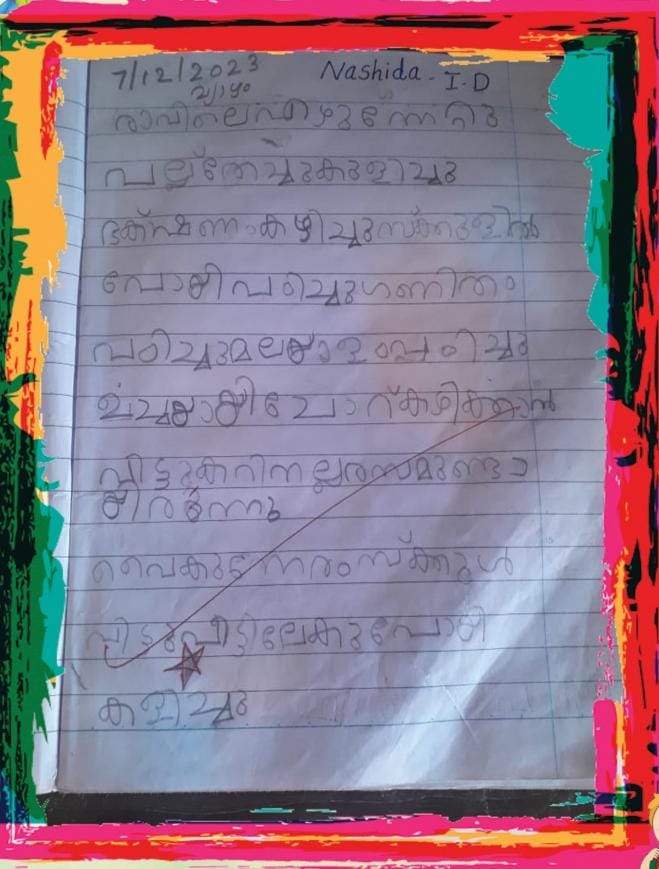 7/12/2023 Nashida - I-D
വ്യാഴം
രാവിലെഎഴുന്നേറ്റു
പല്ല്തേച്ചുകുളിച്ചു
ഭക്ഷണംകഴിച്ചുസ്ക്കൂളിൽ
പോയിപഠിച്ചുഗണിതം
പഠിച്ചുമലയാളംപഠിച്ചു
ഉച്ചയായിചോറ്കഴിക്കാൻ
വിട്ടുകറിനല്ലരസമുണ്ടാ
യിരുന്നു
വൈകുന്നേരംസ്ക്കൂൾ
വിട്ടുവീട്ടിലേകുപോയി
കളിച്ചു